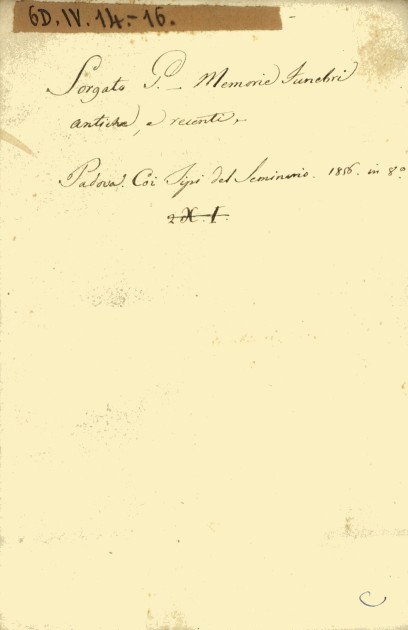 6D.IV.14.-16.
Sorgato G. - Memorie Funebri
antiche, e recenti,
Padova. Coi Tipi del Seminario. 1856. in 8º
2 X. I.